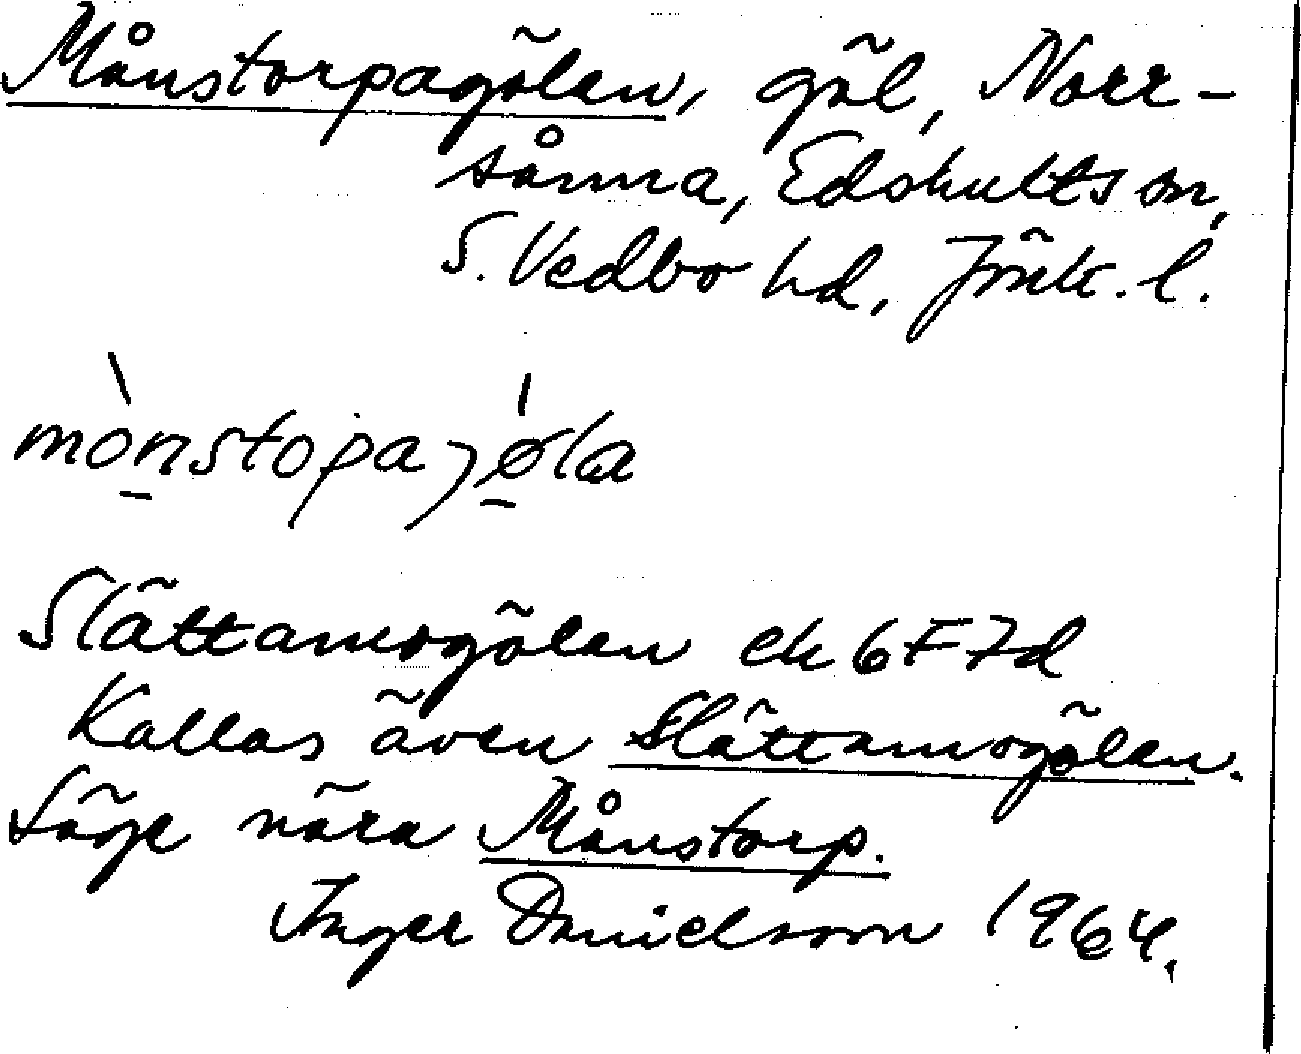 Månstorpagölen, göl, Norr-
sånna, Edshults sn,
S. Vedbo hd, Jönk. l.
mònstopaɟǿla
Slättamogölen ek 6F7d
Kallas även Slättamogölen.
Läge nära Månstorp.
Inger Danielsson 1964.